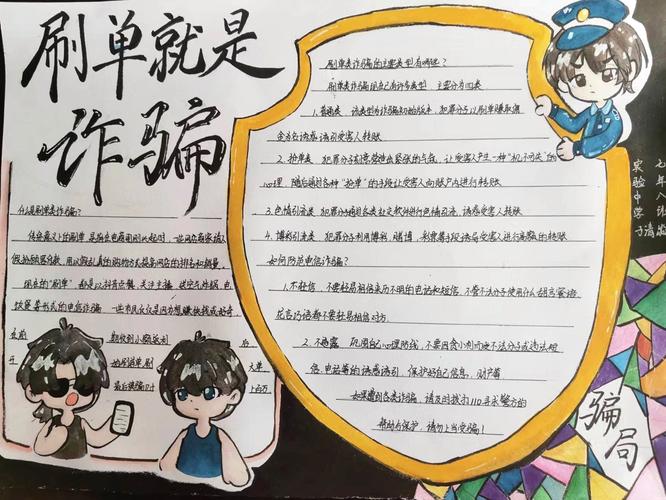 刷单就是
诈骗
什么是刷单类诈骗?
传统意义上的刷单 是指由电商刚刚兴起时 一些网店商家请人
假扮顾客
用以假乱真的购物方式提高网店的排名和销量
现在的"刷单"
关注主播
式的电信诈骗
一些市民
期收到小额返利
后
始刷
单 刷
大单
最后被骗
上百万
刷单类诈骗的主要类型有哪些?
刷单类诈骗现已有许多类型 主要分为四类
1.普通类 该类型为诈骗 犯罪分子以刷单赚取佣
金为由诱惑 受害人转账
2.抢单类 犯罪分子 让受害人产生一种"机不可失"的
心理 随后通过各种"抢单"的手段让受害人向账户内进行转账
3.色情引流类 犯罪分子通过各类社交软件进行色情引流 诱惑受害人转账
4.博彩引流类 犯罪分子利用博彩 赌博 彩票等手段诱导受害人进行高额的转账
如何防范电信诈骗?
1.不轻信 不要轻易相信来历不明的电话和短信 不管不法分子使用什么甜言蜜语
花言巧语都不要轻易相信对方
2.不透露 巩固自己心理防线 不要因贪小利而受不法分子或违法短
信 电话等的诱惑诱引 保护好自己信息 财产等
如果遭到各类诈骗 请及时拨打110寻求警方的
帮助与保护 请勿上当受骗!
实验中学
七年八
骗
局